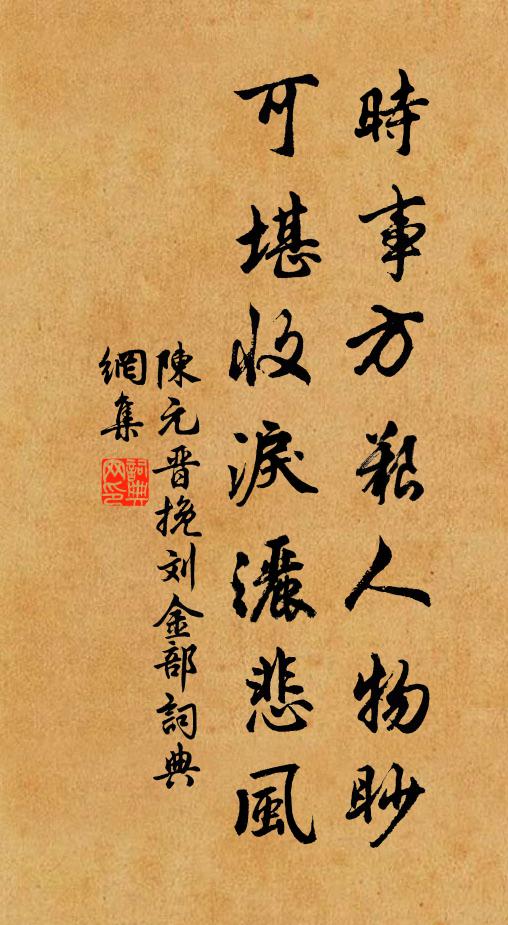 時事方艱人物眇
可堪收淚灑悲風
陳元晋挽刘金部詞典
網集
詞典网印